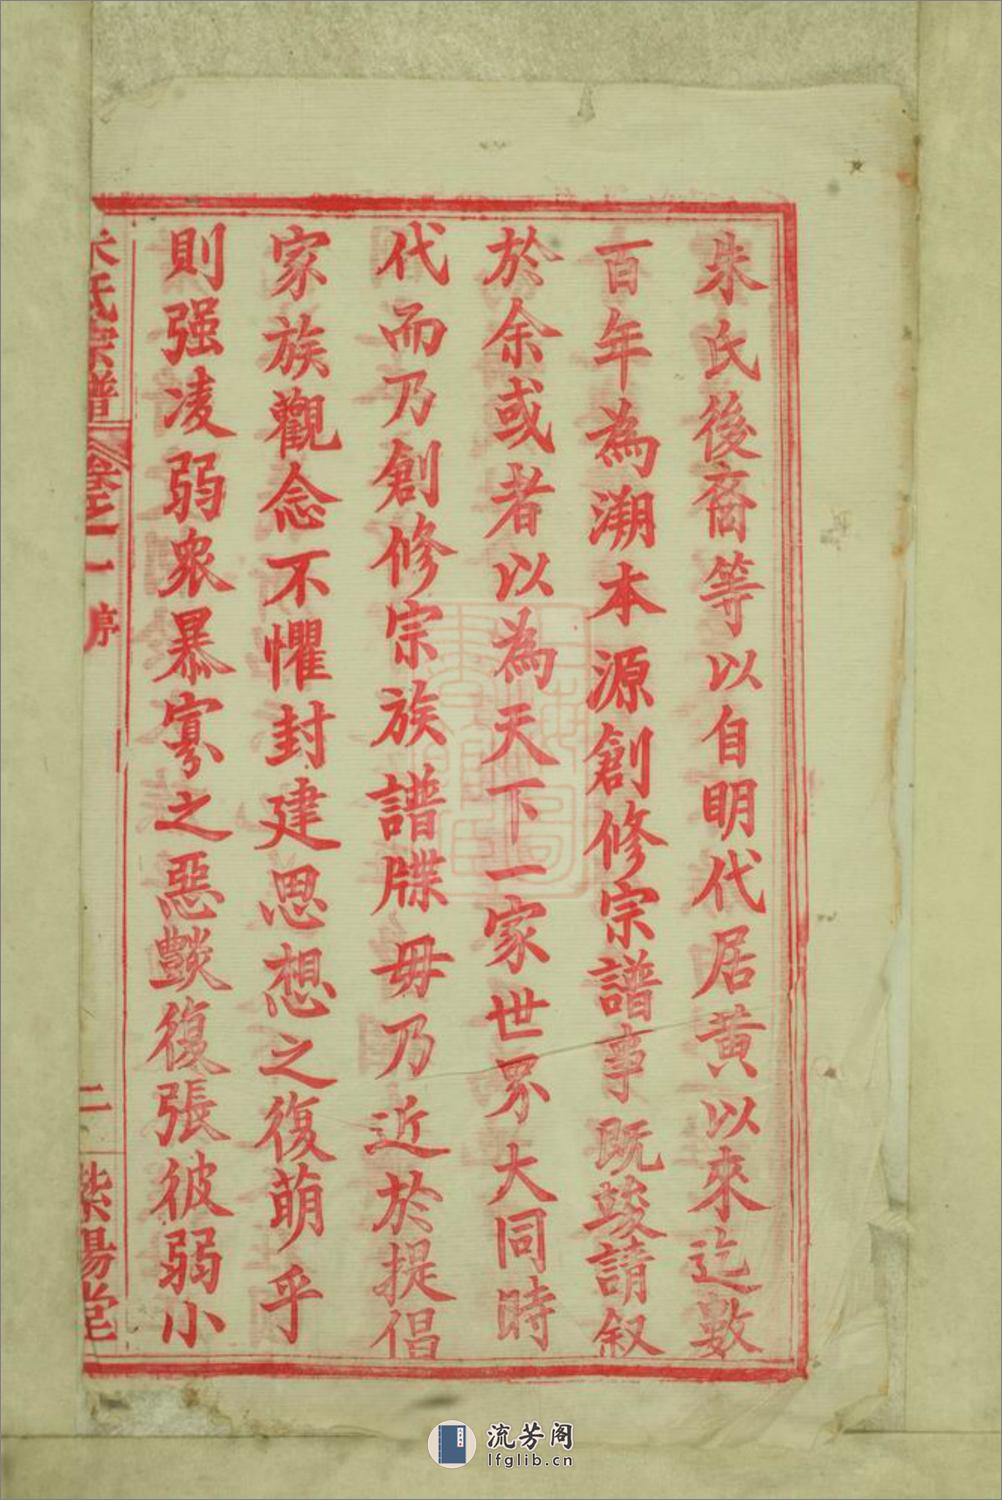 朱氏後裔等以自明代居黄以來迄數
百年為溯本源創修宗譜事既竣請叙
於余或者以為天下一家世界大同時
代而乃創修宗族譜牒毋乃近於提倡
家族觀念不懼封建思想之復萌乎
則强凌弱衆暴寡之惡燄復張彼弱小
朱氏宗譜
卷之一
序
二
紫陽堂
流芳阁
lfglib.cn